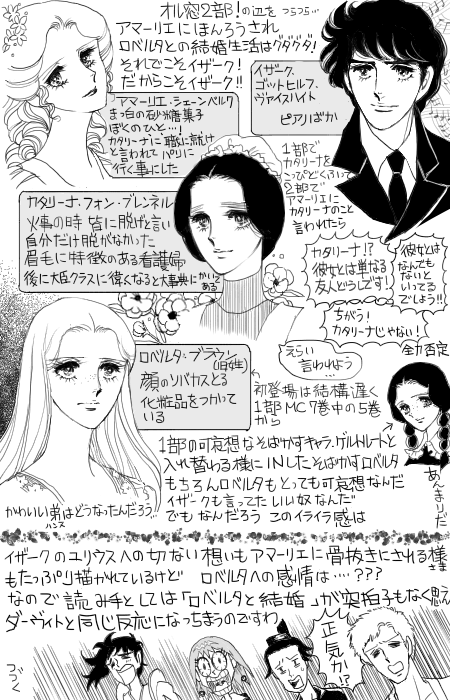 オル窓2部!の辺を つらつら…
アマーリエにほんろうされ
ロベルタとの結婚生活はグダグダ!
それでこそイザーク!
だからこそイザーク!!
イザーク、
ゴットヒルフ、
ヴァイスハイト
ピアノばか
アマーリエ・シェーンベルク
まっ白の砂糖菓子
ぼくのひと…!
カタリーナに
と言われてパリに
行く事にした
1部で
カタリーナを
こっぴどくふって
2部で
アマーリエに
カタリーナのこと
言われたら
カタリーナ・フォン・ブレンネル
火事の時 皆に脱げと言い
自分だけ脱がなかった
眉毛に特徴のある看護婦
後に大臣クラスに偉くなると大事典にかいてある
カタリーナ!?
彼女とは単なる
友人どうしです!
彼女とは
なんでも
ないと
いってる
でしょう!!
ちがう!
カタリーナじゃない!
全力否定
ロベルタ・ブラウン
(旧姓)
顔のソバカスとる
化粧品をつかって
いる
えらい
言われよう
初登場は結構遅く
1部MC7巻中の5巻
から
1部の可哀想なそばかすキャラ、ゲルトルートと
入れ替わる様にINしたそばかすロベルタ
もちろんロベルタもとっても可哀想なんだ
イザークも言ってた いい奴なんだ
でもなんだろう このイライラ感は
あんまりだ
かわいい弟はどうなったんだろう…
ハンス
イザークのユリウスへの切ない想いもアマーリエに骨抜きにされる様
さま
もたっぷり描かれているけど ロベルタへの感情は‥‥???
なので読み手としては「ロベルタと結婚」が突拍子もなく思え
ダーヴィトと同じ反応になっちまうのですわ
正気か!?
つづく